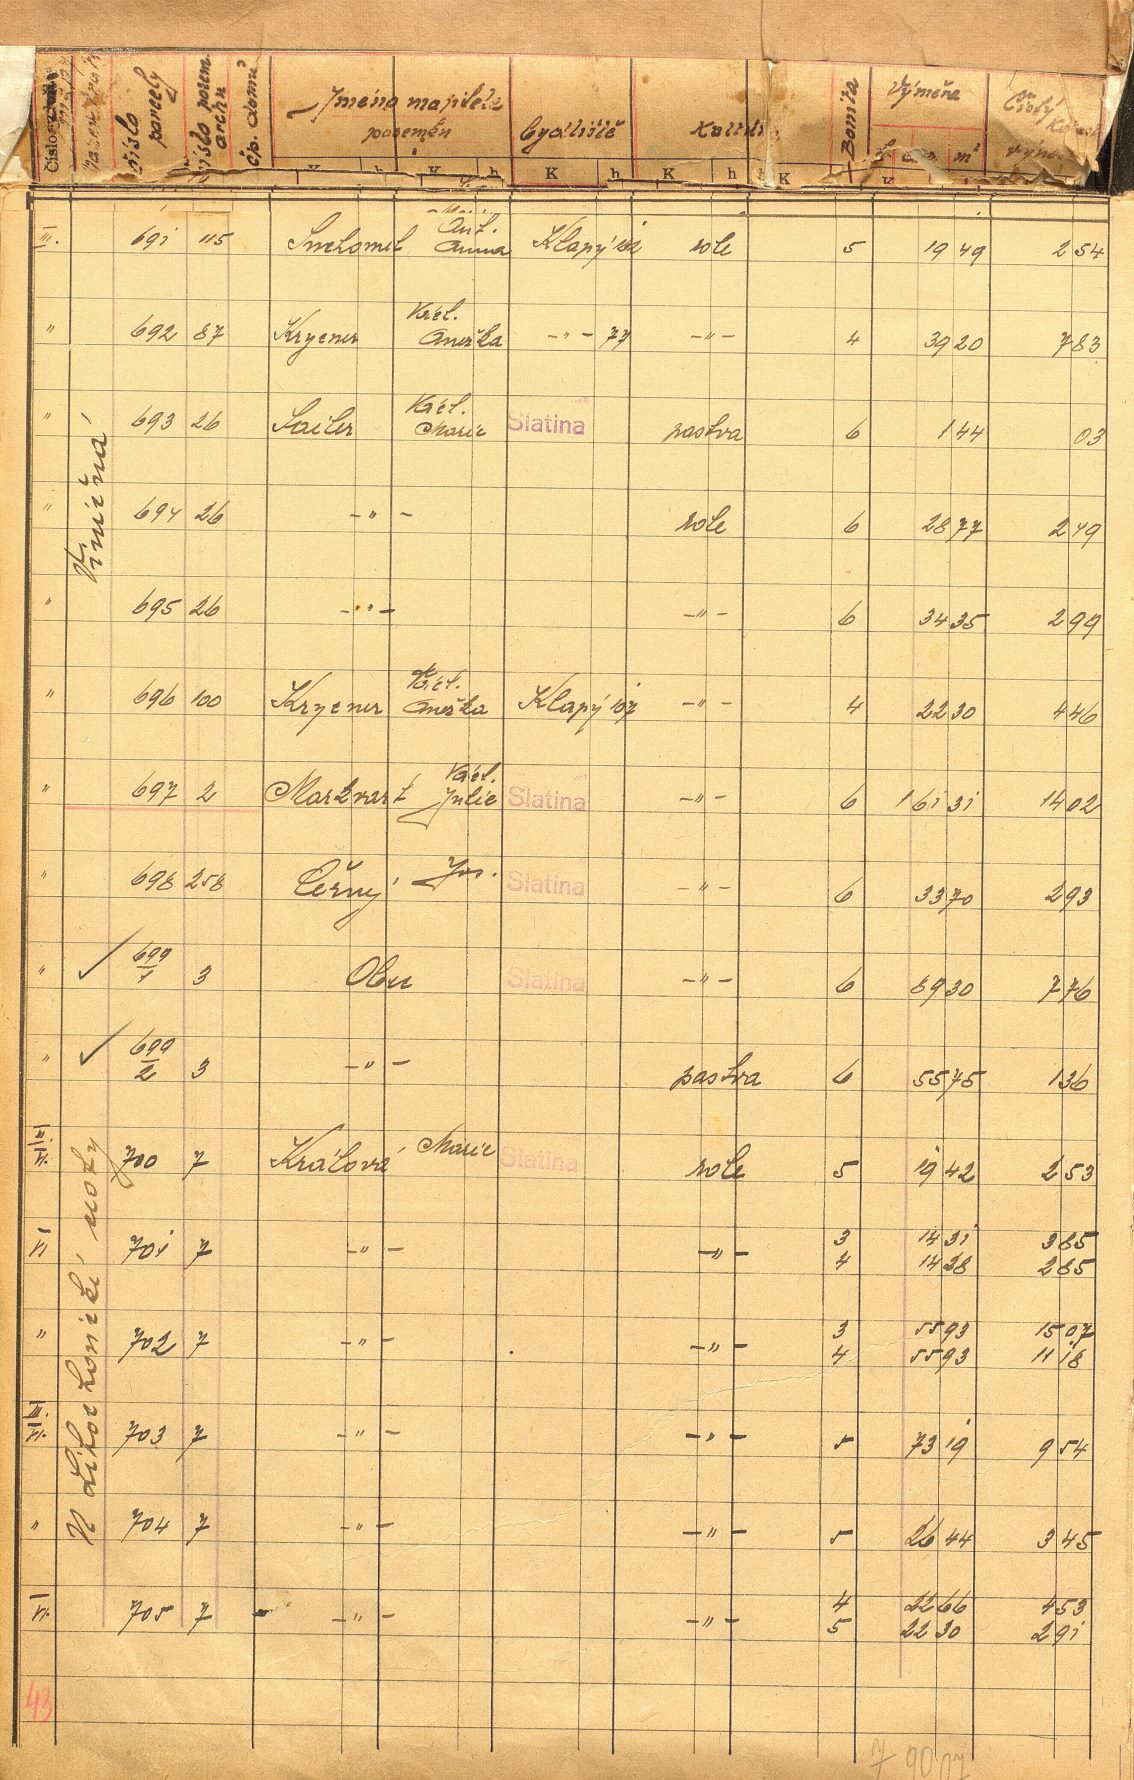 Číslo mapy
číslo parcely
číslo pozem. archu
čp. domu
Jméno majitele pozemku
bydliště
Bonita
Výměra
Čistý
K h K h K h K h K
III. 691 115 Ant. Anna Klapý role 5 19 49 2 54
" 692 87 Krycner Václ. Anežka -"- 77 -"- 4 39 20 7 83
" 693 26 Sailer Václ. Marie Slatina pastva 6 1 44 03
" 694 26 -"- role 6 28 77 2 49
" 695 26 -"- -"- 6 34 35 2 99
Viničná
" 696 100 Krycner Václ. Anežka Klapý 107 -"- 4 22 30 4 46
" 697 2 Markvart Václ. Julie Slatina -"- 6 1 61 31 14 02
" 698 258 Černý Jos. Slatina -"- 6 33 70 2 93
" ✓ 699/1 3 Obec Slatina -"- 6 89 30 7 76
" ✓ 699/2 3 -"- pastva 6 55 75 1 36
III. VI. 700 7 Králová Marie Slatina role 5 19 42 2 53
VI 701 7 -"- -"- 3 14 31 3 85
4 14 28 2 85
" 702 7 -"- -"- 3 55 93 15 07
4 55 93 11 18
III. VI. 703 7 -"- -"- 5 73 19 9 54
" 704 7 -"- -"- 5 26 44 3 45
VI. 705 7 -"- -"- 4 22 66 4 53
5 22 30 2 91
43
7 90 07